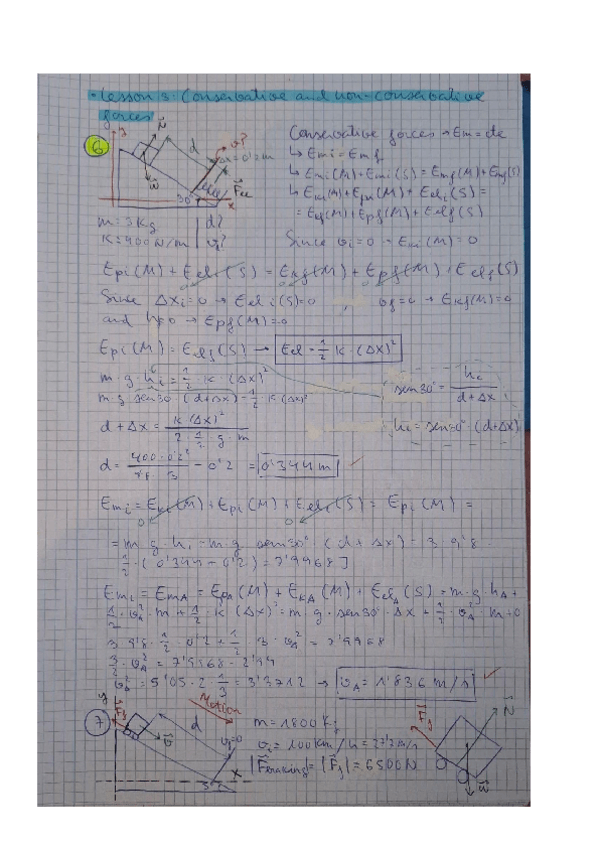 · Lesson 3: Conservative and non-conservative
forces
6
y
N
d
v?
Δx = 0'2m
Fel
W
30°
x
Conservative forces → Em = cte
↳ Emi = Emf
↳ Emi(M) + Emi(S) = Emf(M) + Emf(S)
↳ Eki(M) + Epi(M) + Eeli(S) =
= Ekf(M) + Epf(M) + Eelf(S)
m = 3 Kg
d?
K = 400 N/m
v?
Since vi = 0 → Eki(M) = 0
Epi(M) + Eeli(S) = Ekf(M) + Epf(M) + Eelf(S)
Since Δxi = 0 → Eeli(S) = 0
vf = 0 → Ekf(M) = 0
and hf = 0 → Epf(M) = 0
Epi(M) = Eelf(S) → Eel = 1/2 · K · (Δx)²
m · g · hi = 1/2 · K · (Δx)²
sen30° = hi / d+Δx
m · g · sen30° · (d+Δx) = 1/2 · K · (Δx)²
hi = sen30° · (d+Δx)
d + Δx = K · (Δx)² / 2 · 1/2 · g · m
d = 400 · 0'2² / 9'8 · 3 - 0'2 = 0'344 m
Emi = Eki(M) + Epi(M) + Eeli(S) = Epi(M) =
0
0
= m · g · hi = m · g · sen30° · (d + Δx) = 3 · 9'8 ·
1/2 · (0'344 + 0'2) = 7'9968 J
Emi = EmA = EpA(M) + EkA(M) + EelA(S) = m · g · hA +
1/2 · vA² · m + 1/2 · K · (Δx)² = m · g · sen30° · Δx + 1/2 · vA² · m + 0
3 · 9'8 · 1/2 · 0'2 + 1/2 · 3 · vA² = 7'9968
3/2 · vA² = 7'9968 - 2'94
vA² = 5'05 · 2 · 1/3 = 3'3712 → vA = 1'836 m/s
7
y
Ff
Motion
d
vf = 0
x
5°
m = 1800 Kg
vi = 100 km/h = 27'7 m/s
|Fbraking| = |Ff| = 6500 N
Ff
N
W